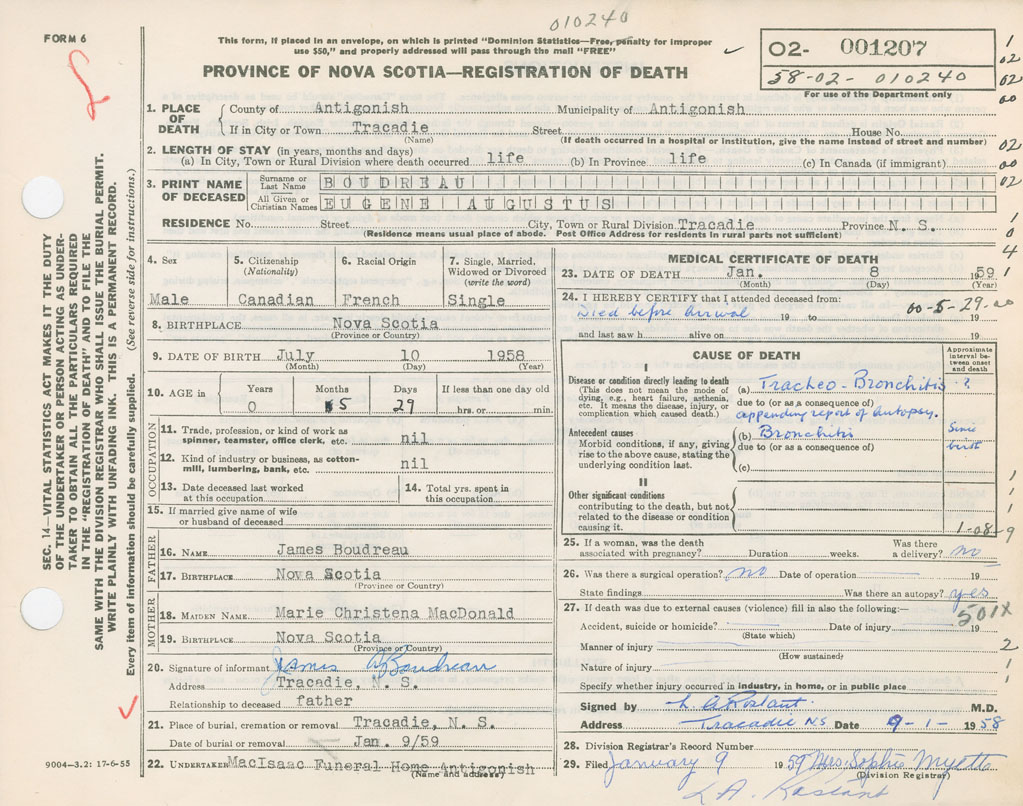 010240
FORM 6
This form, if placed in an envelope, on which is printed "Dominion Statistics—Free, penalty for improper
use $50," and properly addressed will pass through the mail "FREE"
PROVINCE OF NOVA SCOTIA—REGISTRATION OF DEATH
02- 001207
58-02- 010240
For use of the Department only
1
02
02
00
02
00
02
1
0
4
1
SEC. 14—VITAL STATISTICS ACT MAKES IT THE DUTY
OF THE UNDERTAKER OR PERSON ACTING AS UNDER-
TAKER TO OBTAIN ALL THE PARTICULARS REQUIRED
IN THE "REGISTRATION OF DEATH" AND TO FILE THE
SAME WITH THE DIVISION REGISTRAR WHO SHALL ISSUE THE BURIAL PERMIT.
WRITE PLAINLY WITH UNFADING INK. THIS IS A PERMANENT RECORD.
Every item of information should be carefully supplied. (See reverse side for instructions.)
1. PLACE OF DEATH
County of Antigonish Municipality of Antigonish
If in City or Town Tracadie Street House No.
(Name) (If death occurred in a hospital or institution, give the name instead of street and number)
2. LENGTH OF STAY (in years, months and days)
(a) In City, Town or Rural Division where death occurred life (b) In Province life (c) In Canada (if immigrant)
3. PRINT NAME OF DECEASED
Surname or Last Name BOUDREAU
All Given or Christian Names EUGENE AUGUSTUS
RESIDENCE No. Street City, Town or Rural Division Tracadie Province N. S.
(Residence means usual place of abode. Post Office Address for residents in rural parts not sufficient)
4. Sex
Male
5. Citizenship (Nationality)
Canadian
6. Racial Origin
French
7. Single, Married, Widowed or Divorced (write the word)
Single
8. BIRTHPLACE Nova Scotia
(Province or Country)
9. DATE OF BIRTH July 10 1958
(Month) (Day) (Year)
10. AGE in
Years Months Days If less than one day old
0 5 29 hrs. or min.
OCCUPATION
11. Trade, profession, or kind of work as
spinner, teamster, office clerk, etc. nil
12. Kind of industry or business, as cotton-
mill, lumbering, bank, etc. nil
13. Date deceased last worked
at this occupation
14. Total yrs. spent in
this occupation
15. If married give name of wife
or husband of deceased
FATHER
16. NAME James Boudreau
17. BIRTHPLACE Nova Scotia
(Province or Country)
MOTHER
18. MAIDEN NAME Marie Christena MacDonald
19. BIRTHPLACE Nova Scotia
(Province or Country)
20. Signature of informant James A Boudreau
Address Tracadie, N. S.
Relationship to deceased father
21. Place of burial, cremation or removal Tracadie, N. S.
Date of burial or removal Jan. 9/59
22. UNDERTAKER MacIsaac Funeral Home Antigonish
(Name and address)
9004—3.2: 17-6-55
MEDICAL CERTIFICATE OF DEATH
23. DATE OF DEATH Jan. 8 1959
(Month) (Day) (Year)
24. I HEREBY CERTIFY that I attended deceased from: 00-5-29-00
Died before arrival 19 to 19
and last saw h alive on 19
CAUSE OF DEATH
Approximate interval between onset and death
I
Disease or condition directly leading to death
(This does not mean the mode of
dying, e.g., heart failure, asthenia,
etc. It means the disease, injury, or
complication which caused death.)
(a) Tracheo-Bronchitis ?
due to (or as a consequence of)
appending report of autopsy.
Antecedent causes
Morbid conditions, if any, giving
rise to the above cause, stating the
underlying condition last.
(b) Bronchitis Since birth
due to (or as a consequence of)
(c)
II
Other significant conditions
contributing to the death, but not
related to the disease or condition
causing it.
1-08-9
1
1
1
25. If a woman, was the death Was there
associated with pregnancy? Duration weeks. a delivery? no
26. Was there a surgical operation? no Date of operation 19
State findings Was there an autopsy? yes
27. If death was due to external causes (violence) fill in also the following:— 501X
Accident, suicide or homicide? Date of injury 19
(State which)
Manner of injury 2
(How sustained)
Nature of injury 1
Specify whether injury occurred in industry, in home, or in public place 1
Signed by M.D.
Address Tracadie N.S. Date 9-1-1958
28. Division Registrar's Record Number
29. Filed January 9 1959 Mrs. Sophie Myette
(Division Registrar)